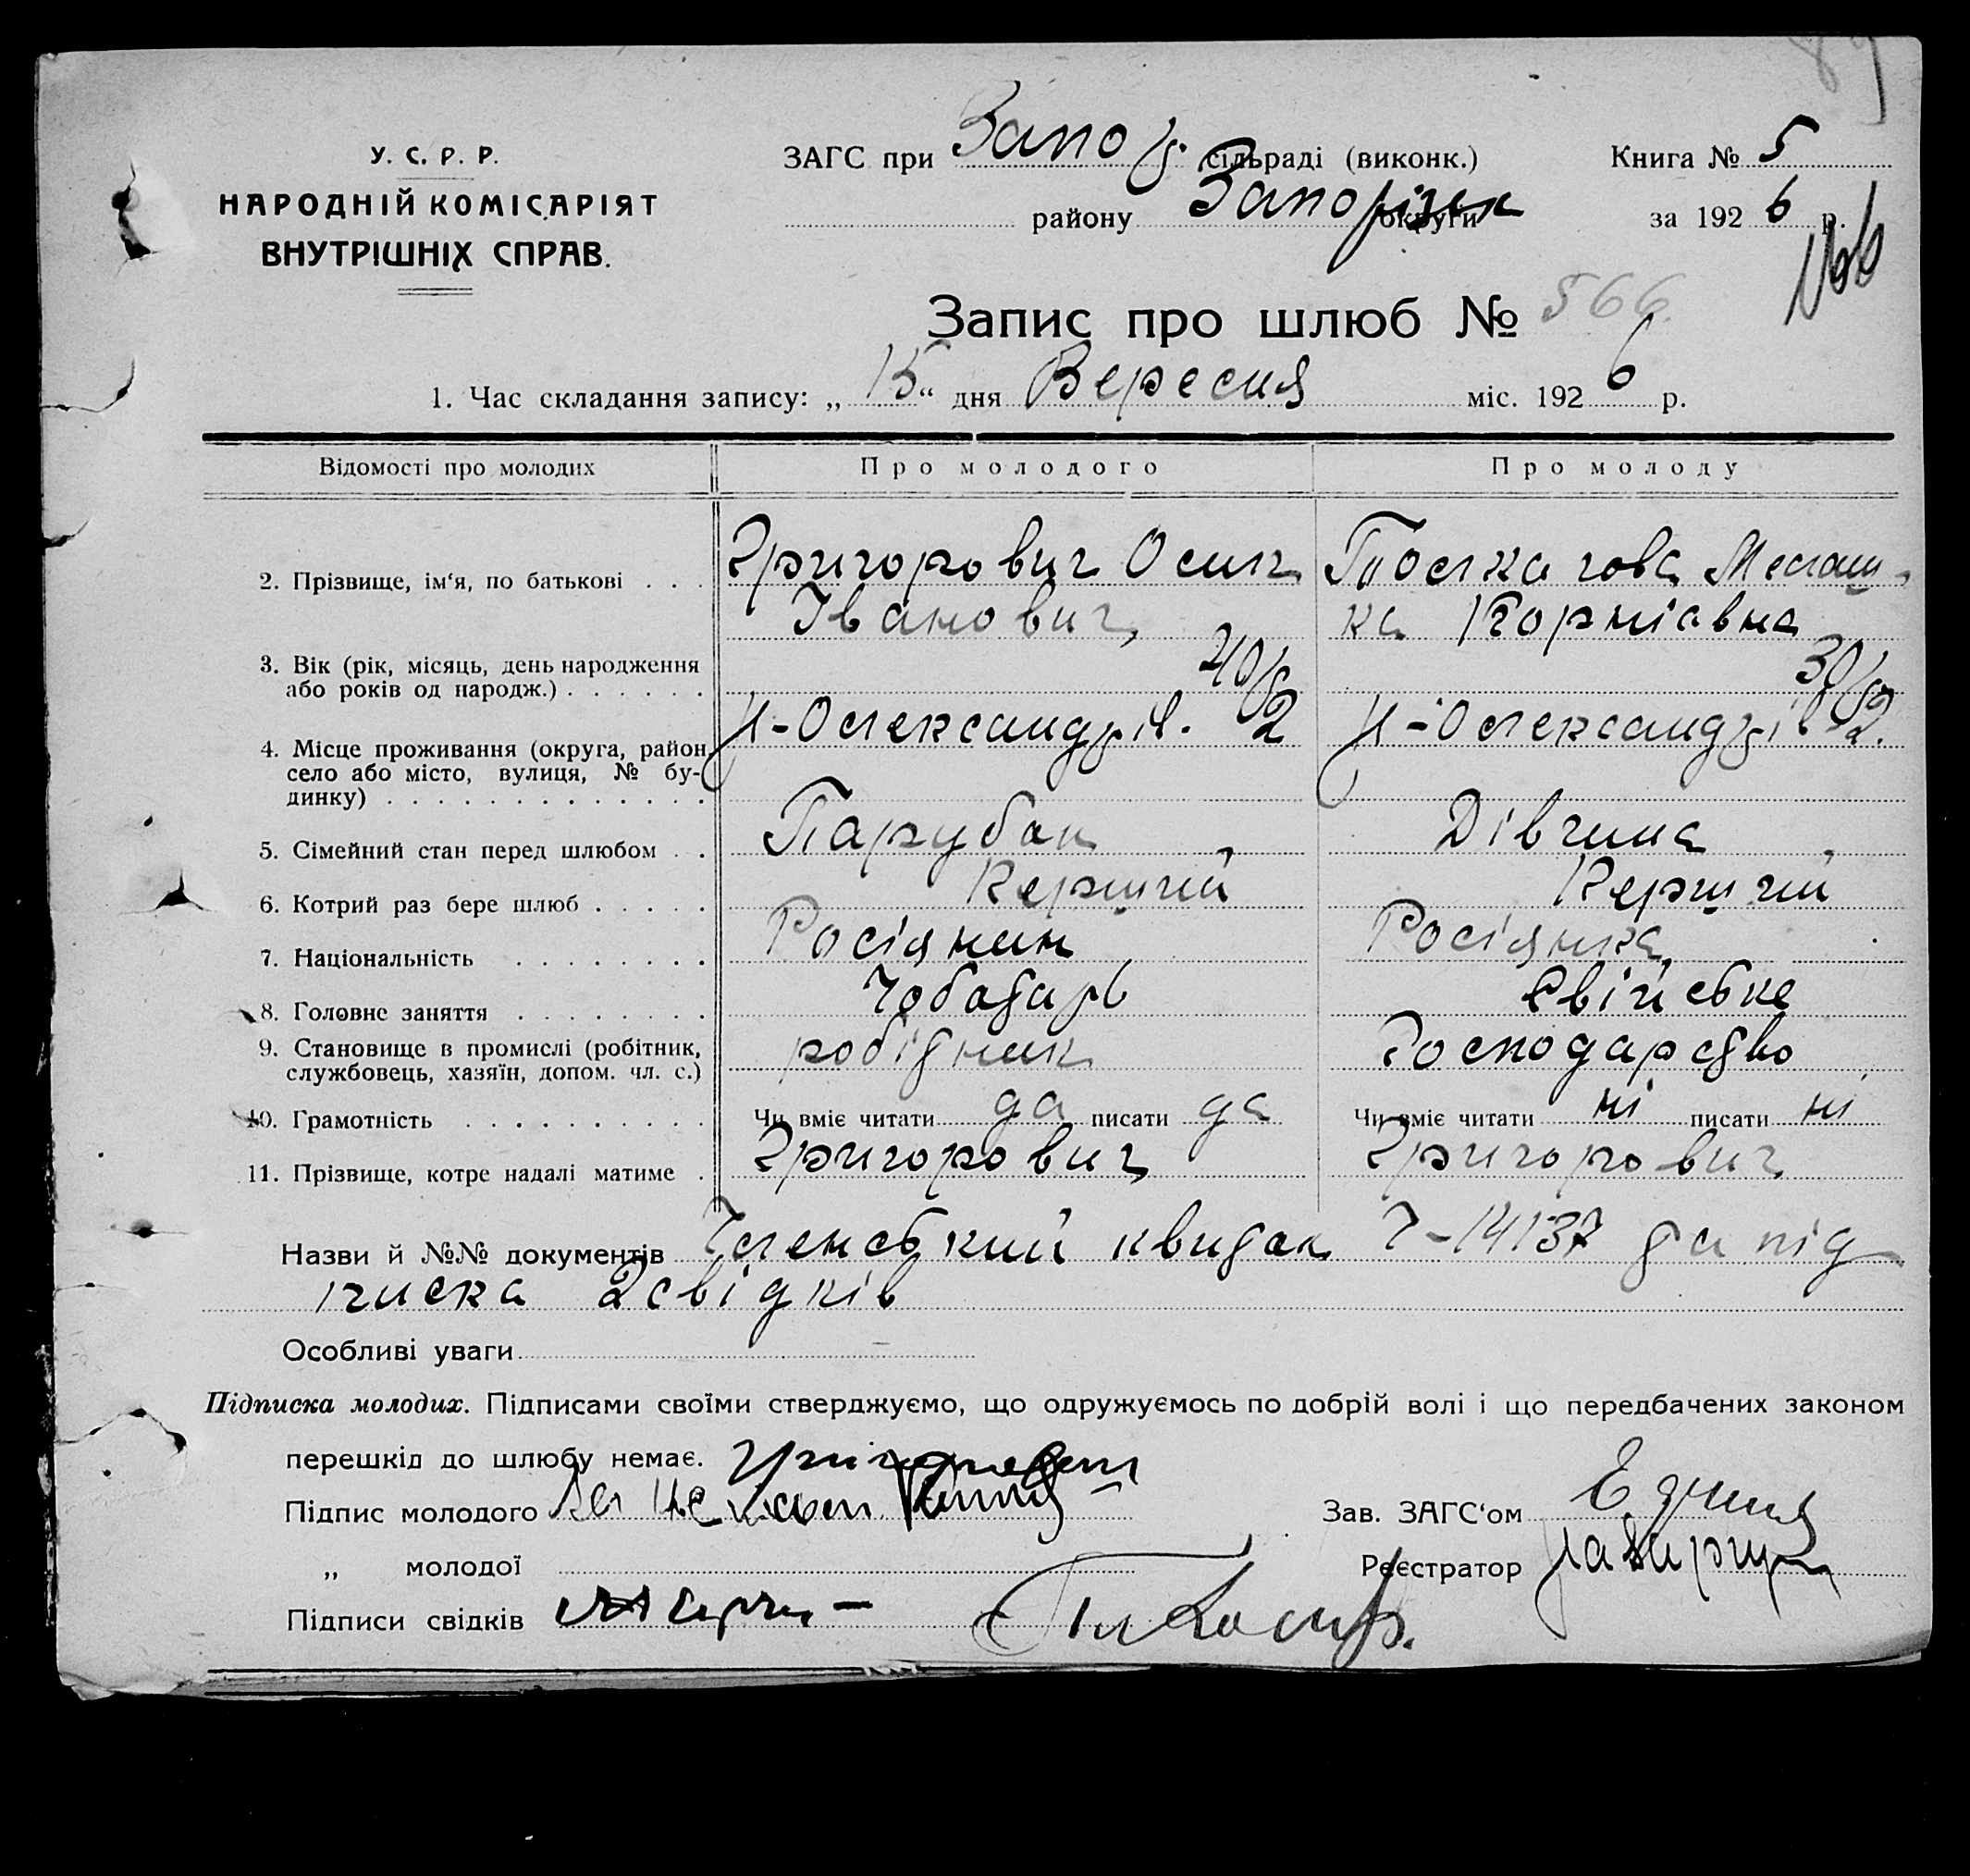 У. С. Р. Р.
НАРОДНІЙ КОМІСАРІЯТ
ВНУТРІШНІХ СПРАВ.
ЗАГС при Запор. сільраді (виконк.) Книга № 5
району Запорізьк округи за 1926 р.
Запис про шлюб № 566
1. Час складання запису: „15“ дня Вересня міс. 1926 р.
Відомості про молодих Про молодого Про молоду
2. Прізвище, ім'я, по батькові . . . Григорович Осип Малаш-
Іванович ка Корніивна
3. Вік (рік, місяць, день народження
або років од народж.) . . . . . .
4. Місце проживання (округа, район, Н-Олександрів. Н-Олександрів
село або місто, вулиця, № бу-
динку) . . . . . . . . . . . . .
5. Сімейний стан перед шлюбом . . Парубок Дівчина
6. Котрий раз бере шлюб . . . . . Перший Перший
7. Національність . . . . . . . . Росіянин Росіянка
8. Головне заняття . . . . . . . . Чоботарь Свійське
9. Становище в промислі (робітник, робітник Господарство
службовець, хазяїн, допом. чл. с.)
10. Грамотність . . . . . . . . . . Чи вміє читати да писати да Чи вміє читати ні писати ні
11. Прізвище, котре надалі матиме . Григорович Григорович
Назви й №№ документів Членський квиток Ч-14137 та під
писка 2 свідків
Особливі уваги
Підписка молодих. Підписами своїми стверджуємо, що одружуємось по добрій волі і що передбачених законом
перешкід до шлюбу немає.
Підпис молодого Зав. ЗАГС'ом
„ молодої Реєстратор
Підписи свідків